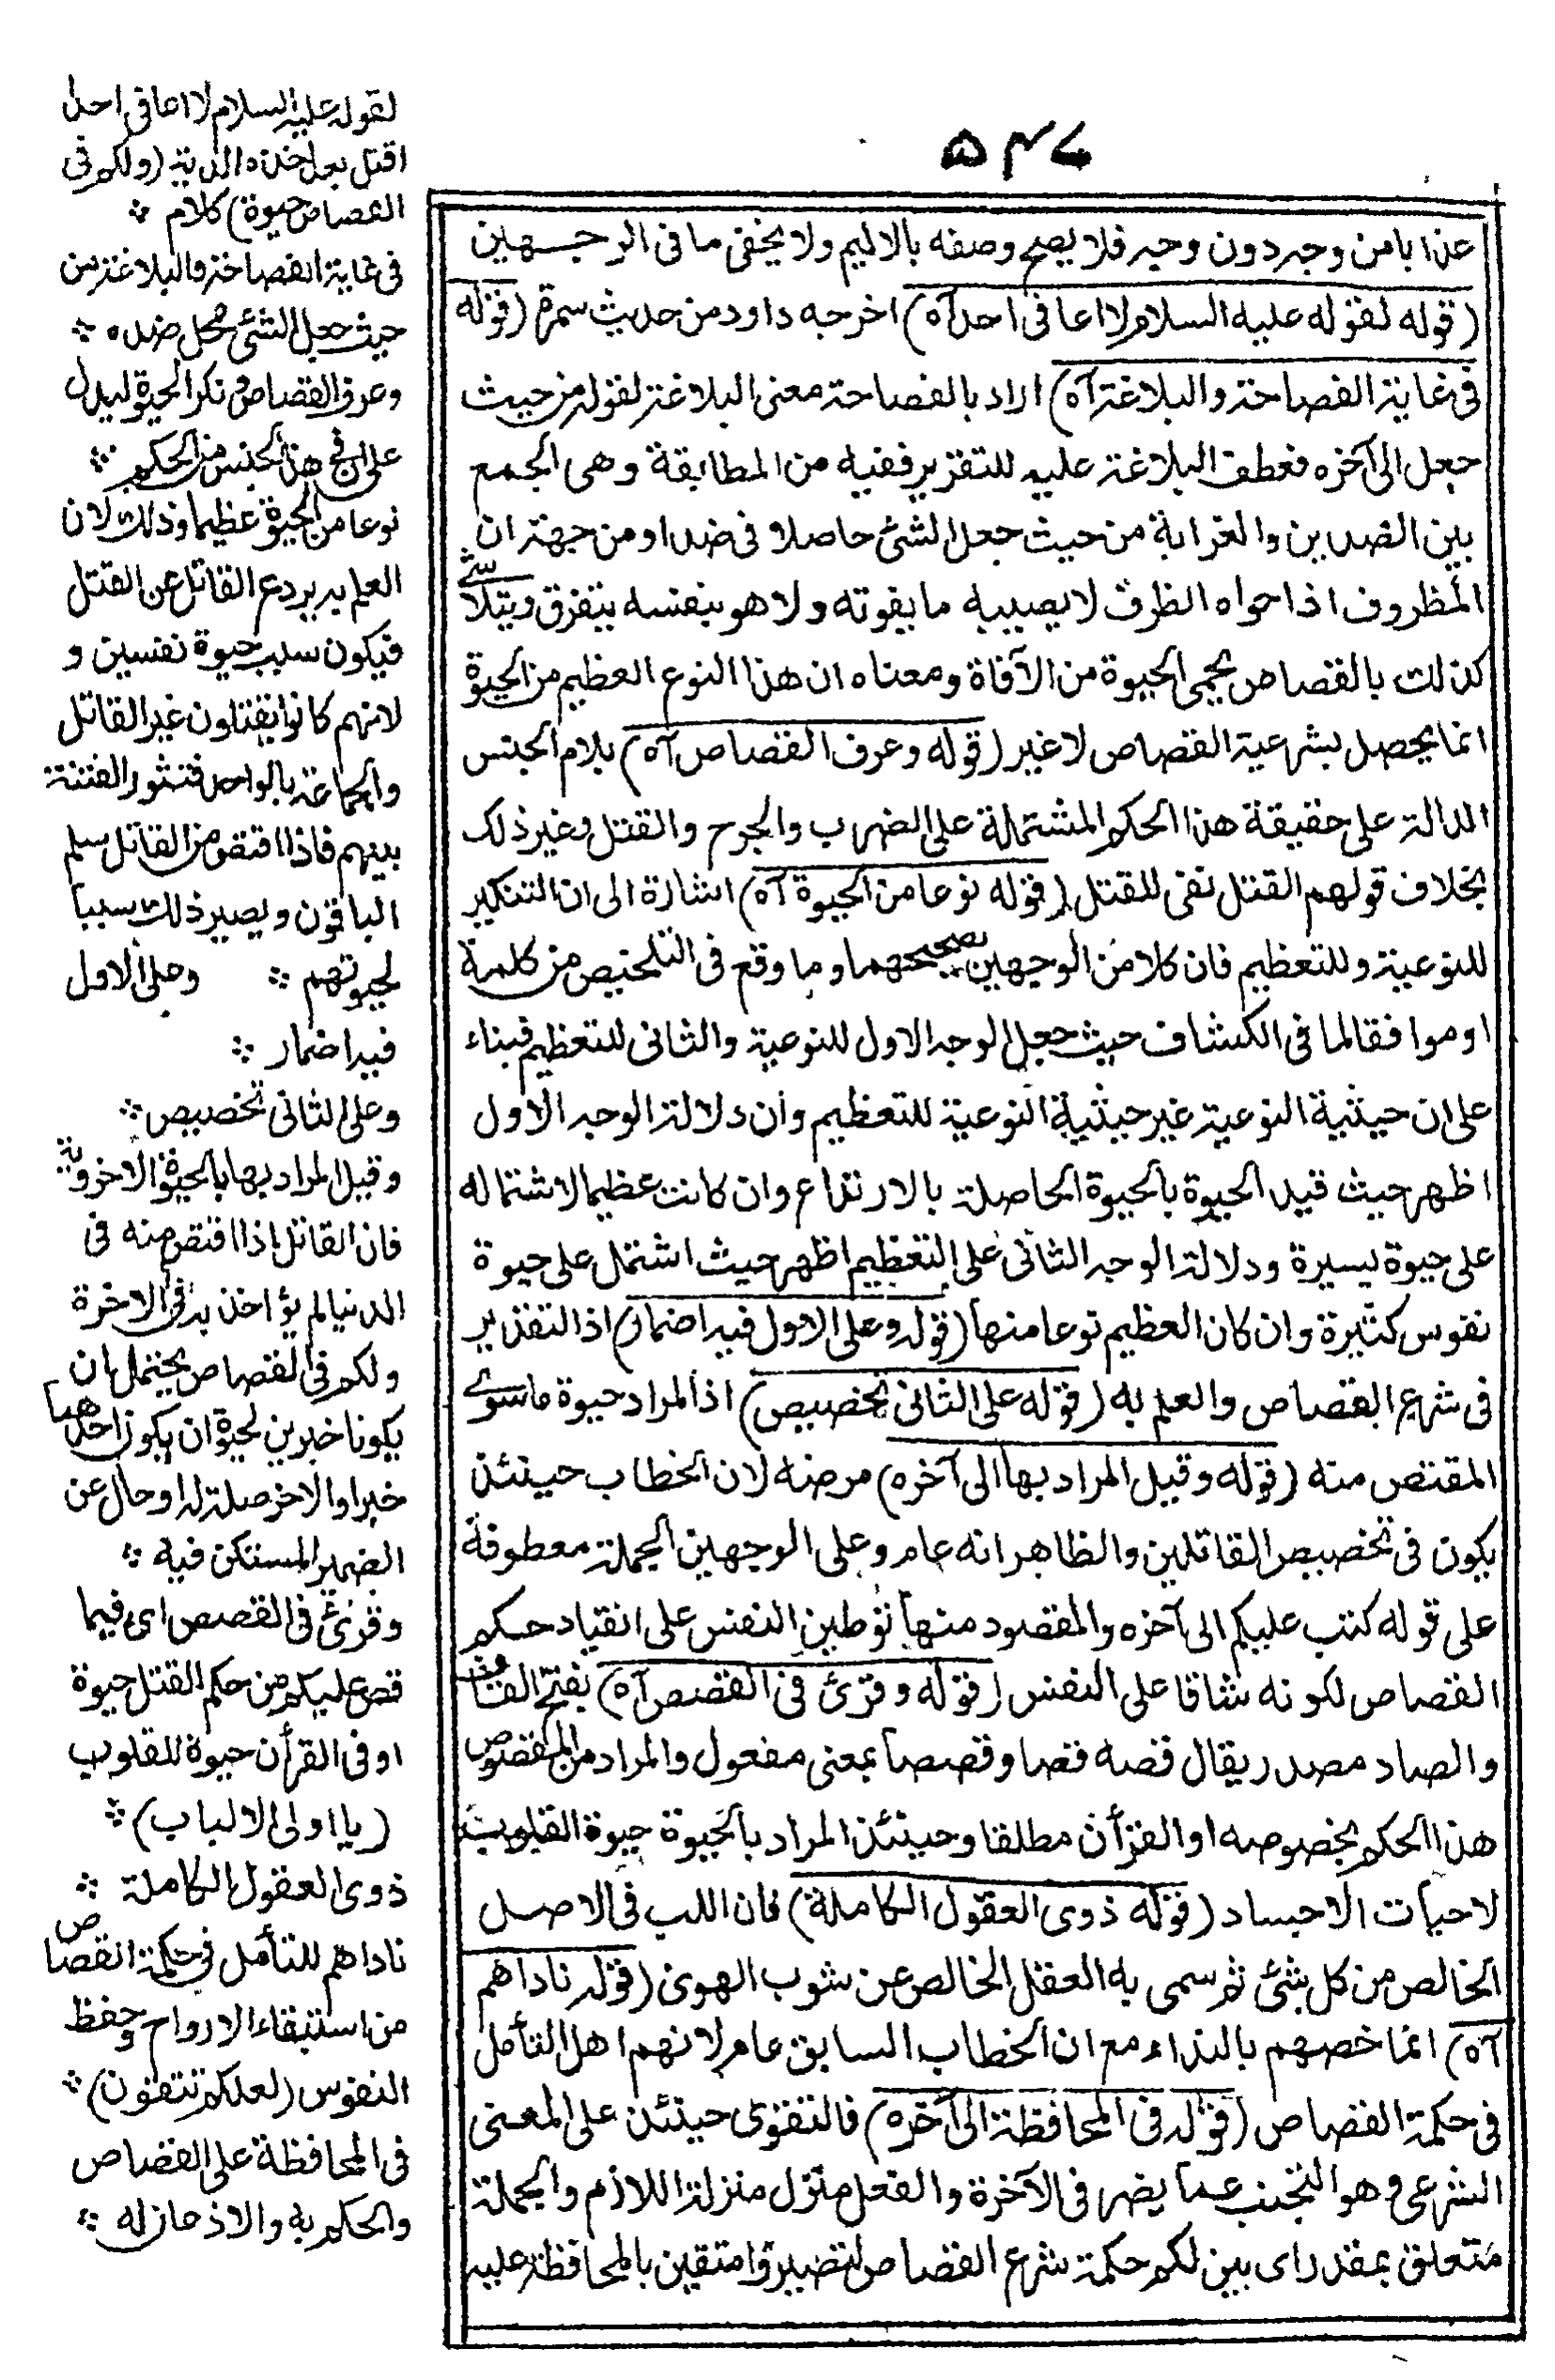 ۵۴۷
عذابا من وجه دون وجه فلا يصح وصفه بالاليم ولا يخفى ما فى الوجهين
(قوله لقوله عليه السلام لا اعافى احدا آه) اخرجه داود من حديث سمرة (قوله
فى غاية الفصاحة والبلاغة آه) اراد بالفصاحة معنى البلاغة لقوله من حيث
جعل الى آخره فعطف البلاغة عليه للتقرير ففيه من المطابقة وهى الجمع
بين الضدين والغرابة من حيث جعل الشئ حاصلا فى ضده او من جهة ان
المظروف اذا حواه الظرف لا يصيبه ما يفوته ولا هو بنفسه يتفرق ويتلاشے
كذلك بالقصاص يحمى الحيوة من الآفاة ومعناه ان هذا النوع العظيم من الحيوة
انما يحصل بشرعية القصاص لا غير (قوله وعرف القصاص آه) بلام الجنس
الدالة على حقيقة هذا الحكم المشتملة على الضرب والجرح والقتل وغير ذلك
بخلاف قولهم القتل نفى للقتل (قوله نوعا من الحيوة آه) اشارة الى ان التنكير
للنوعية وللتعظيم فان كلا من الوجهين يصححهما وما وقع فى التلخيص من كلمة
او موافقا لما فى الكشاف حيث جعل الوجه الاول للنوعية والثانى للتعظيم فبناء
على ان حيثية النوعية غير حيثية النوعية للتعظيم وان دلالة الوجه الاول
اظهر حيث قيد الحيوة بالحيوة الحاصلة بالارتداع وان كانت عظيما لاشتماله
على حيوة يسيرة ودلالة الوجه الثانى على التعظيم اظهر حيث اشتمل على حيوة
نفوس كثيرة وان كان العظيم نوعا منها (قوله وعلى الاول فيه اضمار) اذ التقدير
فى شرع القصاص والعلم به (قوله على الثانى تخصيص) اذ المراد حيوة ما سوے
المقتص منه (قوله وقيل المراد بها الى آخره) مرضه لان الخطاب حينئذ
يكون فى تخصيص القاتلين والظاهر انه عام وعلى الوجهين الجملة معطوفة
على قوله كتب عليكم الى آخره والمقصود منها توطين النفس على انقياد حكم
القصاص لكونه شاقا على النفس (قوله وقرئ فى القصص آه) بفتح القاف
والصاد مصدر يقال قصه قصا وقصصا بمعنى مفعول والمراد من المقصوص
هذا الحكم بخصوصه او القرأن مطلقا وحينئذ المراد بالحيوة حيوة القلوب
لا حيات الاجساد (قوله ذوى العقول الكاملة) فان اللب فى الاصل
الخالص من كل شئ ثم سمى به العقل الخالص عن شوب الهوى (قوله ناداهم
آه) انما خصهم بالنداء مع ان الخطاب السابق عام لانهم اهل التأمل
فى حكمة القصاص (قوله فى المحافظة الى آخره) فالتقوى حينئذ على المعنى
الشرعى وهو التجنب عما يضر فى الآخرة والفعل منزل منزلة اللازم والجملة
متعلق بمقدر اى بين لكم حكمة شرع القصاص لتصيروا متقين بالمحافظة عليه
لقوله عليه السلام لا اعافى احدا
اقتل بعد اخذه الدية (ولكم فى
القصاص حيوة) كلام
فى غاية الفصاحة والبلاغة من
حيث جعل الشئ محل ضده
وعرف القصاص ونكر الحيوة ليدل
على ان فى هذا الجنس من الحكم
نوعا من الحيوة عظيما وذلك لان
العلم به يردع القاتل عن القتل
فيكون سبب حيوة نفسين و
لانهم كانوا يقتلون غير القاتل
والجماعة بالواحد فتثور الفتنة
بينهم فاذا اقتص من القاتل سلم
الباقون ويصير ذلك سببا
لحيوتهم وعلى الاول
فيه اضمار
وعلى الثانى تخصيص
وقيل المراد بها بالحيوة الاخروية
فان القاتل اذا اقتص منه فى
الدنيا لم يؤاخذ به فى الاخرة
ولكم فى القصاص يحتمل ان
يكونا خبرين لحيوة ان يكون احدهما
خبرا والاخر صلة له او حال عن
الضمير المستكن فيه
وقرئ فى القصص اى فيما
قص عليكم من حكم القتل حيوة
او فى القرأن حيوة للقلوب
(يا اولى الالباب)
ذوى العقول الكاملة
ناداهم للتأمل فى حكمة القصاص
من استبقاء الارواح وحفظ
النفوس (لعلكم تتقون)
فى المحافظة على القصاص
والحكم به والاذعان له